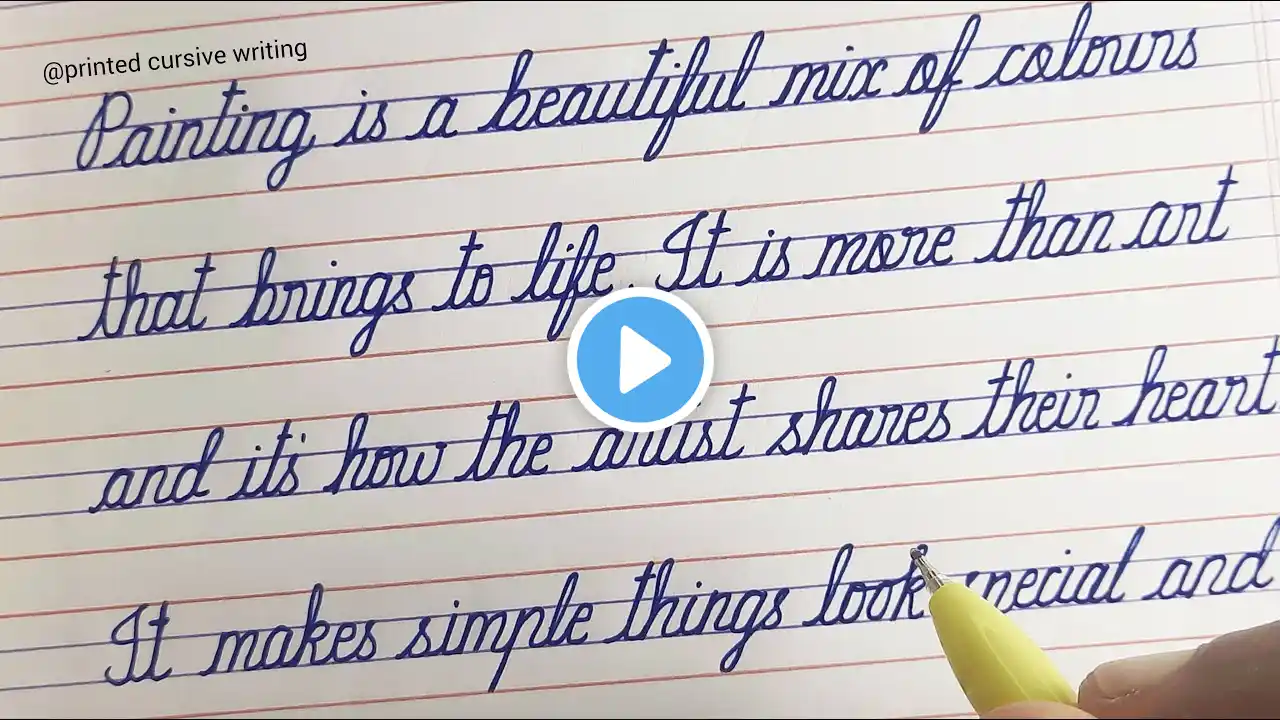 @printed cursive writing
Painting is a beautiful mix of colours
that brings to life. It is more than art
and it's how the artist shares their heart
It makes simple things look special and